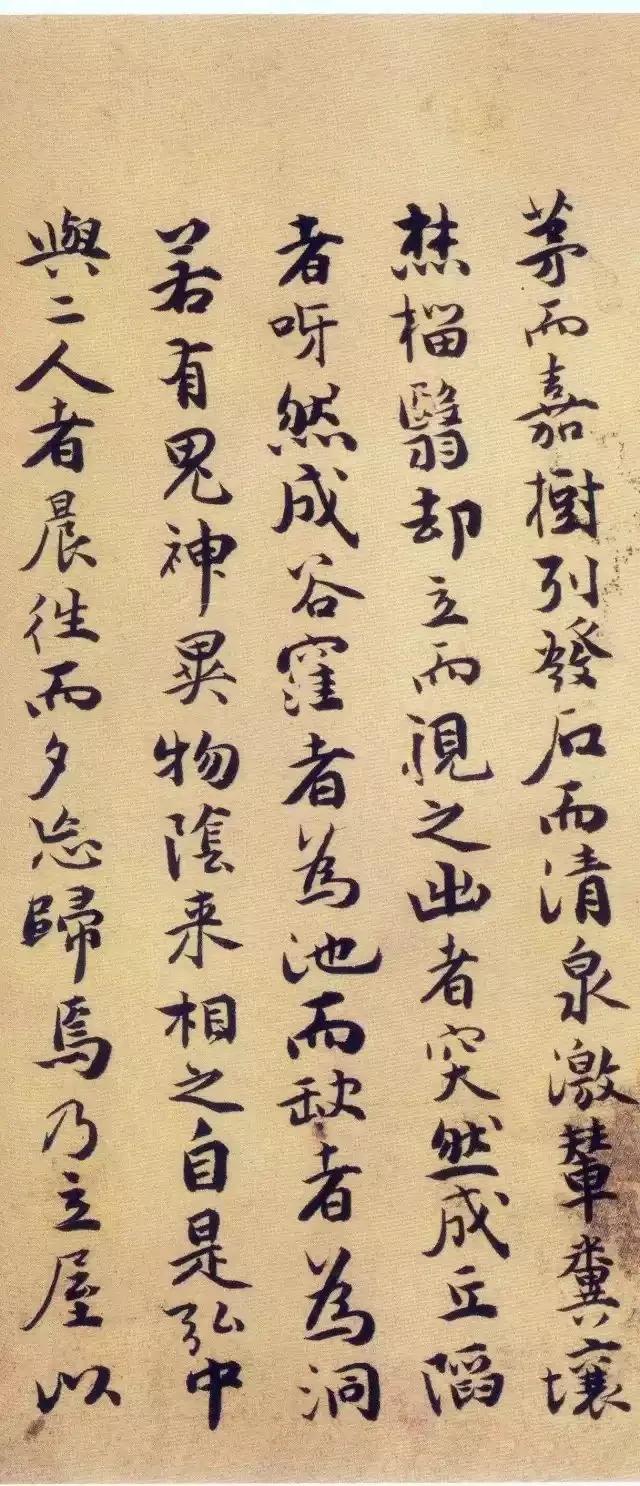 茅而嘉樹列發石而清泉激輦糞壤
焚榴翳却立而視之出者突然成丘陷
者呀然成谷窪者為池而缺者為洞
若有鬼神異物陰来相之自是弘中
與二人者晨往而夕忘歸焉乃立屋以